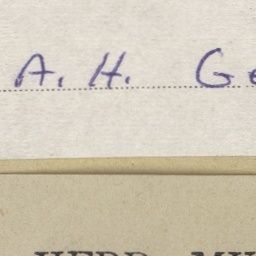 A. H. Ge
HERB. MU